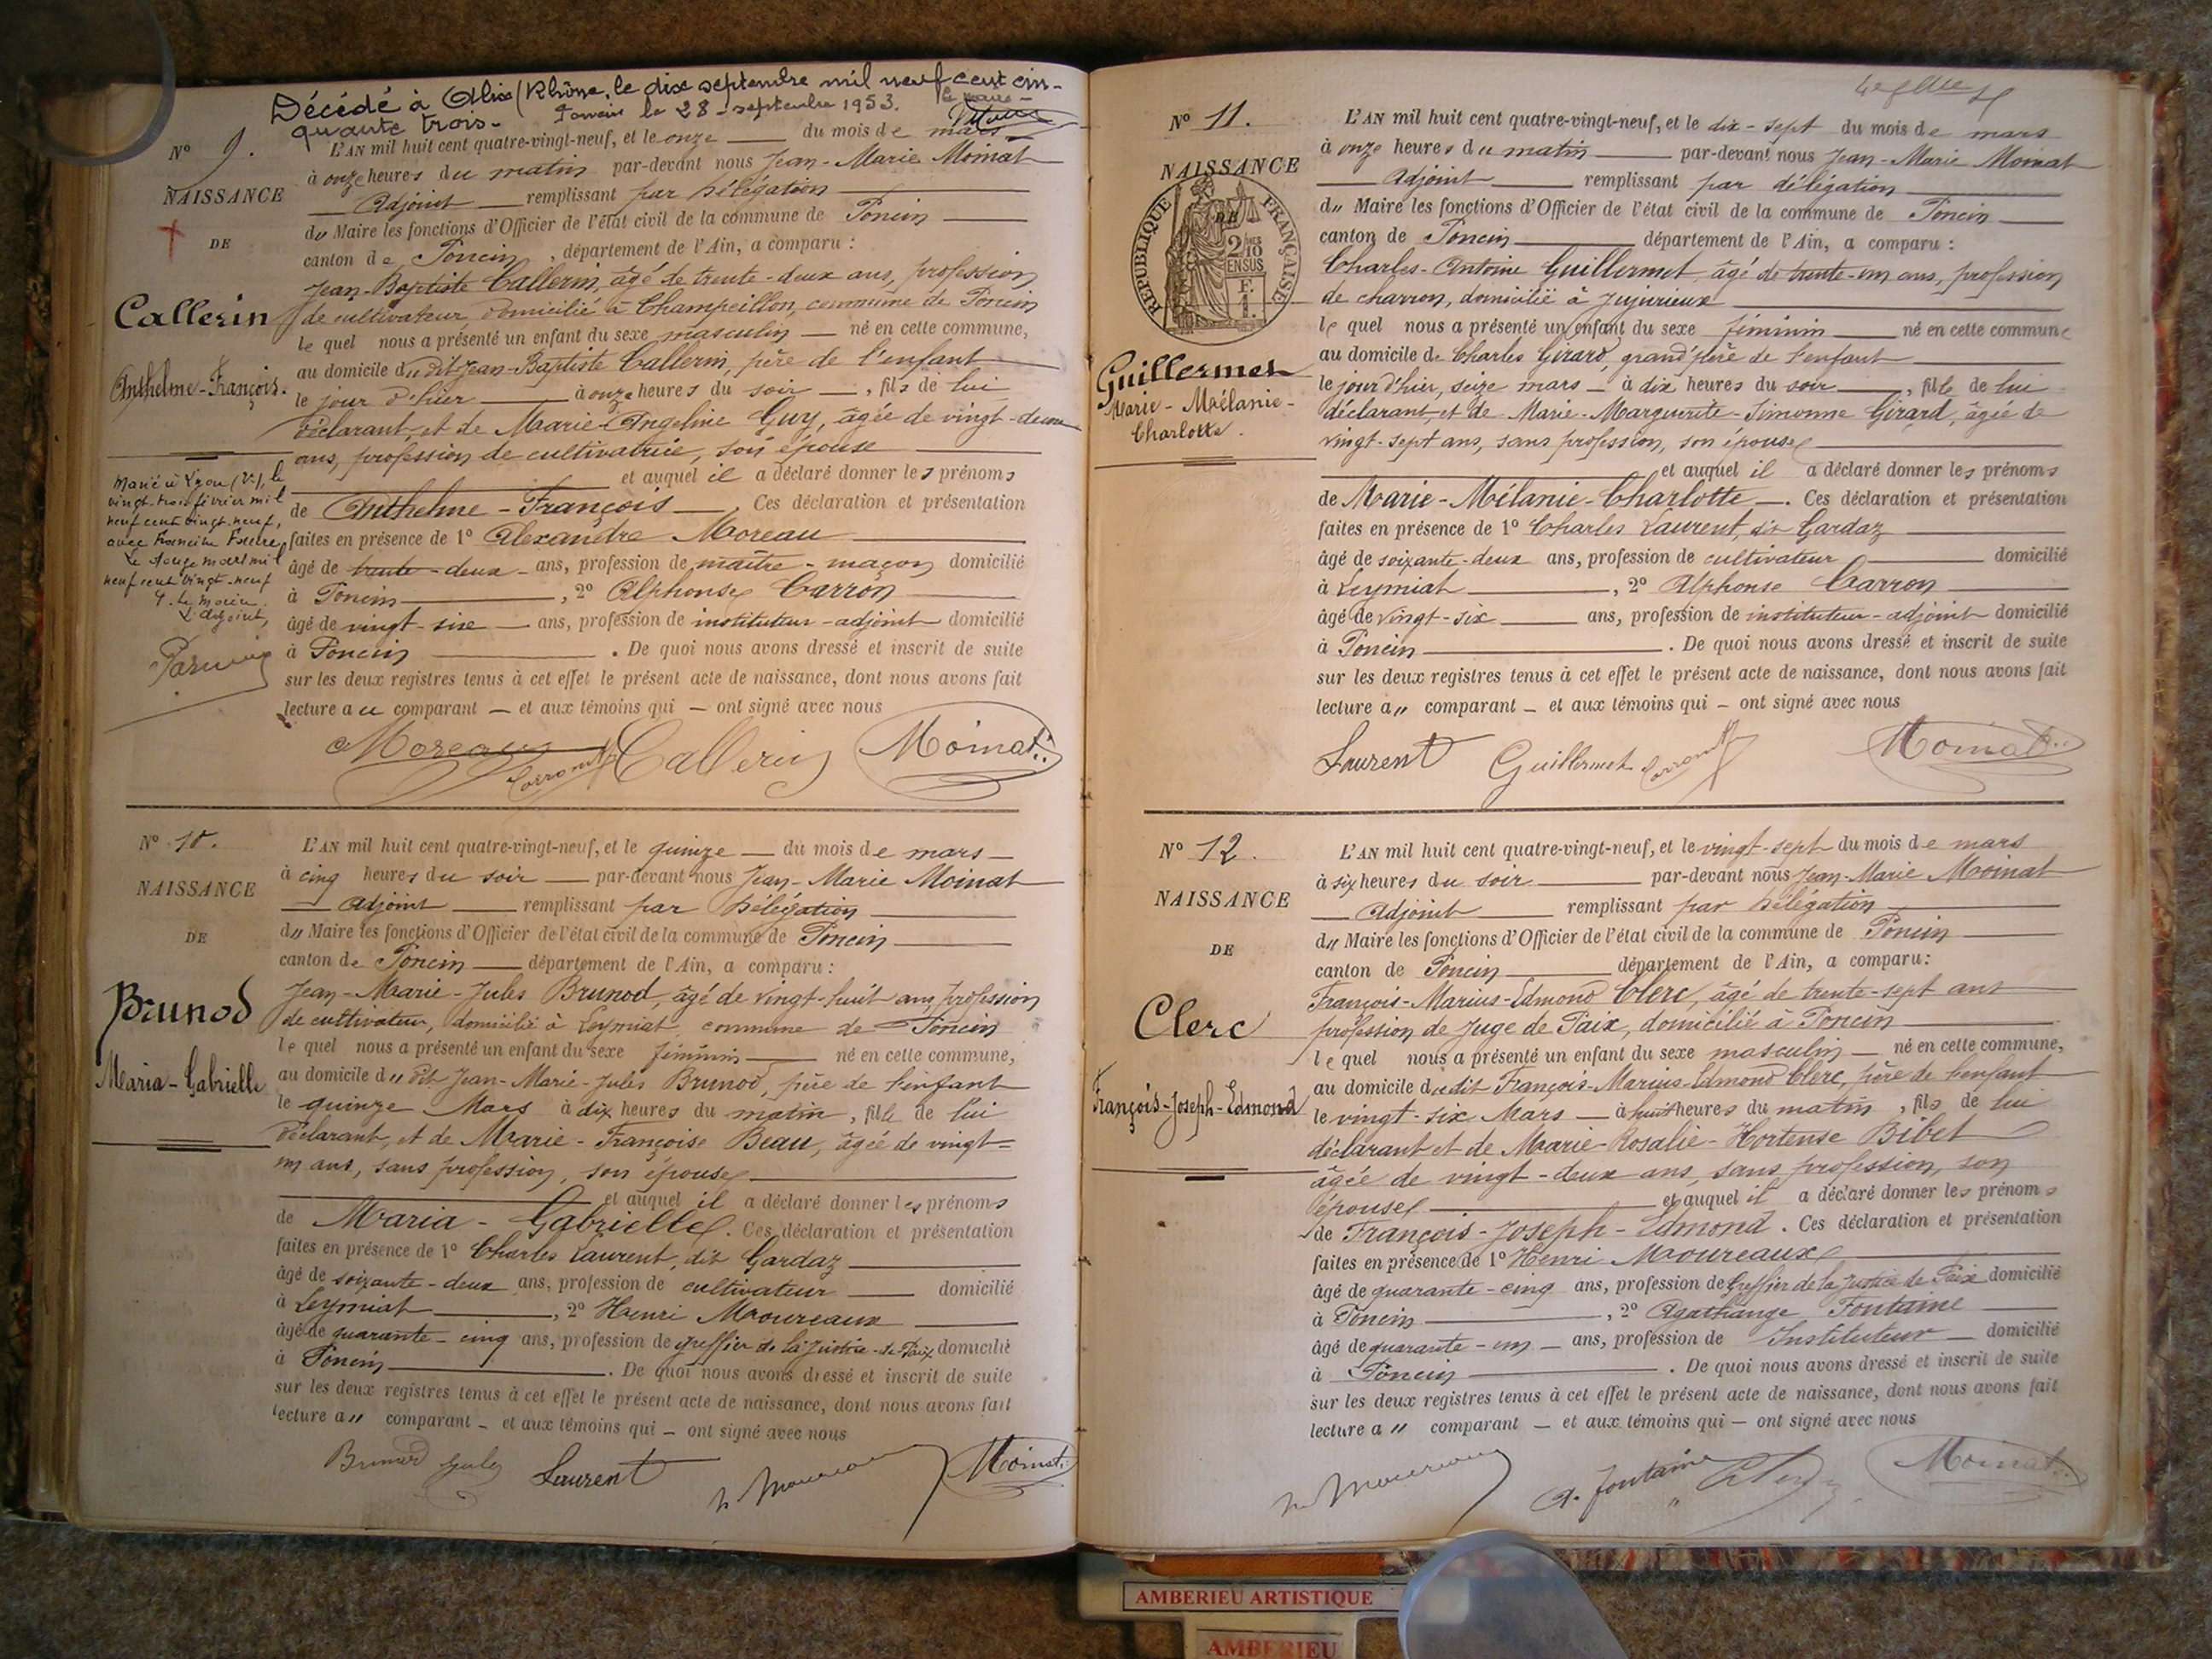 Décédé à Alix (Rhône, le dix septembre mil neuf cent cin-
quante trois. Poncin le 28 septembre 1953.
N° 9.
NAISSANCE
DE
Callerin
Anthelme-François.
L'AN mil huit cent quatre-vingt-neuf, et le onze du mois de mars
à onze heures du matin par-devant nous Jean-Marie Moinat
Adjoint remplissant par délégation
du Maire les fonctions d'Officier de l'état civil de la commune de Poncin
canton de Poncin, département de l'Ain, a comparu :
Jean-Baptiste Callerin, âgé de trente-deux ans, profession
de cultivateur, domicilié à Champeillon, commune de Poncin
le quel nous a présenté un enfant du sexe masculin né en cette commune,
au domicile du dit Jean-Baptiste Callerin, père de l'enfant
le jour d'hier à onze heures du soir, fils de lui
déclarant, et de Marie-Angeline Guy, âgée de vingt-deux
ans, profession de cultivatrice, son épouse
et auquel il a déclaré donner les prénoms
de Anthelme-François. Ces déclaration et présentation
faites en présence de 1° Alexandre Moreau
âgé de trente-deux ans, profession de maître-maçon domicilié
à Poncin, 2° Alphonse Carron
âgé de vingt-six ans, profession de instituteur-adjoint domicilié
à Poncin. De quoi nous avons dressé et inscrit de suite
sur les deux registres tenus à cet effet le présent acte de naissance, dont nous avons fait
lecture au comparant et aux témoins qui ont signé avec nous
Marié à Lyon (V°), le
vingt-trois février mil
neuf cent vingt-neuf,
avec Francine
Le douze mars mil
neuf cent vingt-neuf
P. Le Maire
L'adjoint,
Moreau Carron Callerin Moinat
N° 10.
NAISSANCE
DE
Brunod
Maria-Gabrielle
L'AN mil huit cent quatre-vingt-neuf, et le quinze du mois de mars
à cinq heures du soir par-devant nous Jean-Marie Moinat
Adjoint remplissant par délégation
du Maire les fonctions d'Officier de l'état civil de la commune de Poncin
canton de Poncin département de l'Ain, a comparu :
Jean-Marie-Jules Brunod, âgé de vingt-huit ans, profession
de cultivateur, domicilié à Leymiat, commune de Poncin
le quel nous a présenté un enfant du sexe féminin né en cette commune,
au domicile du dit Jean-Marie-Jules Brunod, père de l'enfant
le quinze Mars à dix heures du matin, fille de lui
déclarant, et de Marie-Françoise Beau, âgée de vingt-
un ans, sans profession, son épouse
et auquel il a déclaré donner les prénoms
de Maria-Gabrielle. Ces déclaration et présentation
faites en présence de 1° Charles Laurent, dit Gardaz
âgé de soixante-deux ans, profession de cultivateur domicilié
à Leymiat, 2° Henri Moureaux
âgé de quarante-cinq ans, profession de greffier de la justice-de-Paix domicilié
à Poncin. De quoi nous avons dressé et inscrit de suite
sur les deux registres tenus à cet effet le présent acte de naissance, dont nous avons fait
lecture au comparant et aux témoins qui ont signé avec nous
Brunod Jules Laurent h. Moureaux Moinat
N° 11.
NAISSANCE
DE
REPUBLIQUE FRANÇAISE
2/10
EN SUS
F.
1.
Guillermet
Marie-Mélanie-
Charlotte.
L'AN mil huit cent quatre-vingt-neuf, et le dix-sept du mois de mars
à onze heures du matin par-devant nous Jean-Marie Moinat
Adjoint remplissant par délégation
du Maire les fonctions d'Officier de l'état civil de la commune de Poncin
canton de Poncin département de l'Ain, a comparu :
Charles-Antoine Guillermet âgé de trente-un ans, profession
de charron, domicilié à Jujurieux
le quel nous a présenté un enfant du sexe féminin né en cette commune
au domicile de Charles Girard, grand'père de l'enfant
le jour d'hier, seize mars à dix heures du soir, fille de lui
déclarant, et de Marie-Marguerite-Simonne Girard, âgée de
vingt-sept ans, sans profession, son épouse
et auquel il a déclaré donner les prénoms
de Marie-Mélanie-Charlotte. Ces déclaration et présentation
faites en présence de 1° Charles Laurent, dit Gardaz
âgé de soixante-deux ans, profession de cultivateur domicilié
à Leymiat, 2° Alphonse Carron
âgé de vingt-six ans, profession de instituteur-adjoint domicilié
à Poncin. De quoi nous avons dressé et inscrit de suite
sur les deux registres tenus à cet effet le présent acte de naissance, dont nous avons fait
lecture au comparant et aux témoins qui ont signé avec nous
Laurent Guillermet Carron Moinat
N° 12.
NAISSANCE
DE
Clerc
François-Joseph-Edmond
L'AN mil huit cent quatre-vingt-neuf, et le vingt-sept du mois de mars
à six heures du soir par-devant nous Jean-Marie Moinat
Adjoint remplissant par délégation
du Maire les fonctions d'Officier de l'état civil de la commune de Poncin
canton de Poncin département de l'Ain, a comparu :
François-Marius-Edmond Clerc, âgé de trente-sept ans
profession de Juge de Paix, domicilié à Poncin
le quel nous a présenté un enfant du sexe masculin né en cette commune,
au domicile du dit François-Marius-Edmond Clerc, père de l'enfant
le vingt-six Mars à huit heures du matin, fils de lui
déclarant et de Marie-Rosalie-Hortense Bibet
âgée de vingt-deux ans, sans profession, son
épouse et auquel il a déclaré donner les prénoms
de François-Joseph-Edmond. Ces déclaration et présentation
faites en présence de 1° Henri Moureaux
âgé de quarante-cinq ans, profession de Greffier de la justice de Paix domicilié
à Poncin, 2° Agathange Fontaine
âgé de quarante-un ans, profession de Instituteur domicilié
à Poncin. De quoi nous avons dressé et inscrit de suite
sur les deux registres tenus à cet effet le présent acte de naissance, dont nous avons fait
lecture au comparant et aux témoins qui ont signé avec nous
h. Moureaux A. Fontaine Clerc Moinat
AMBERIEU ARTISTIQUE
AMBERIEU